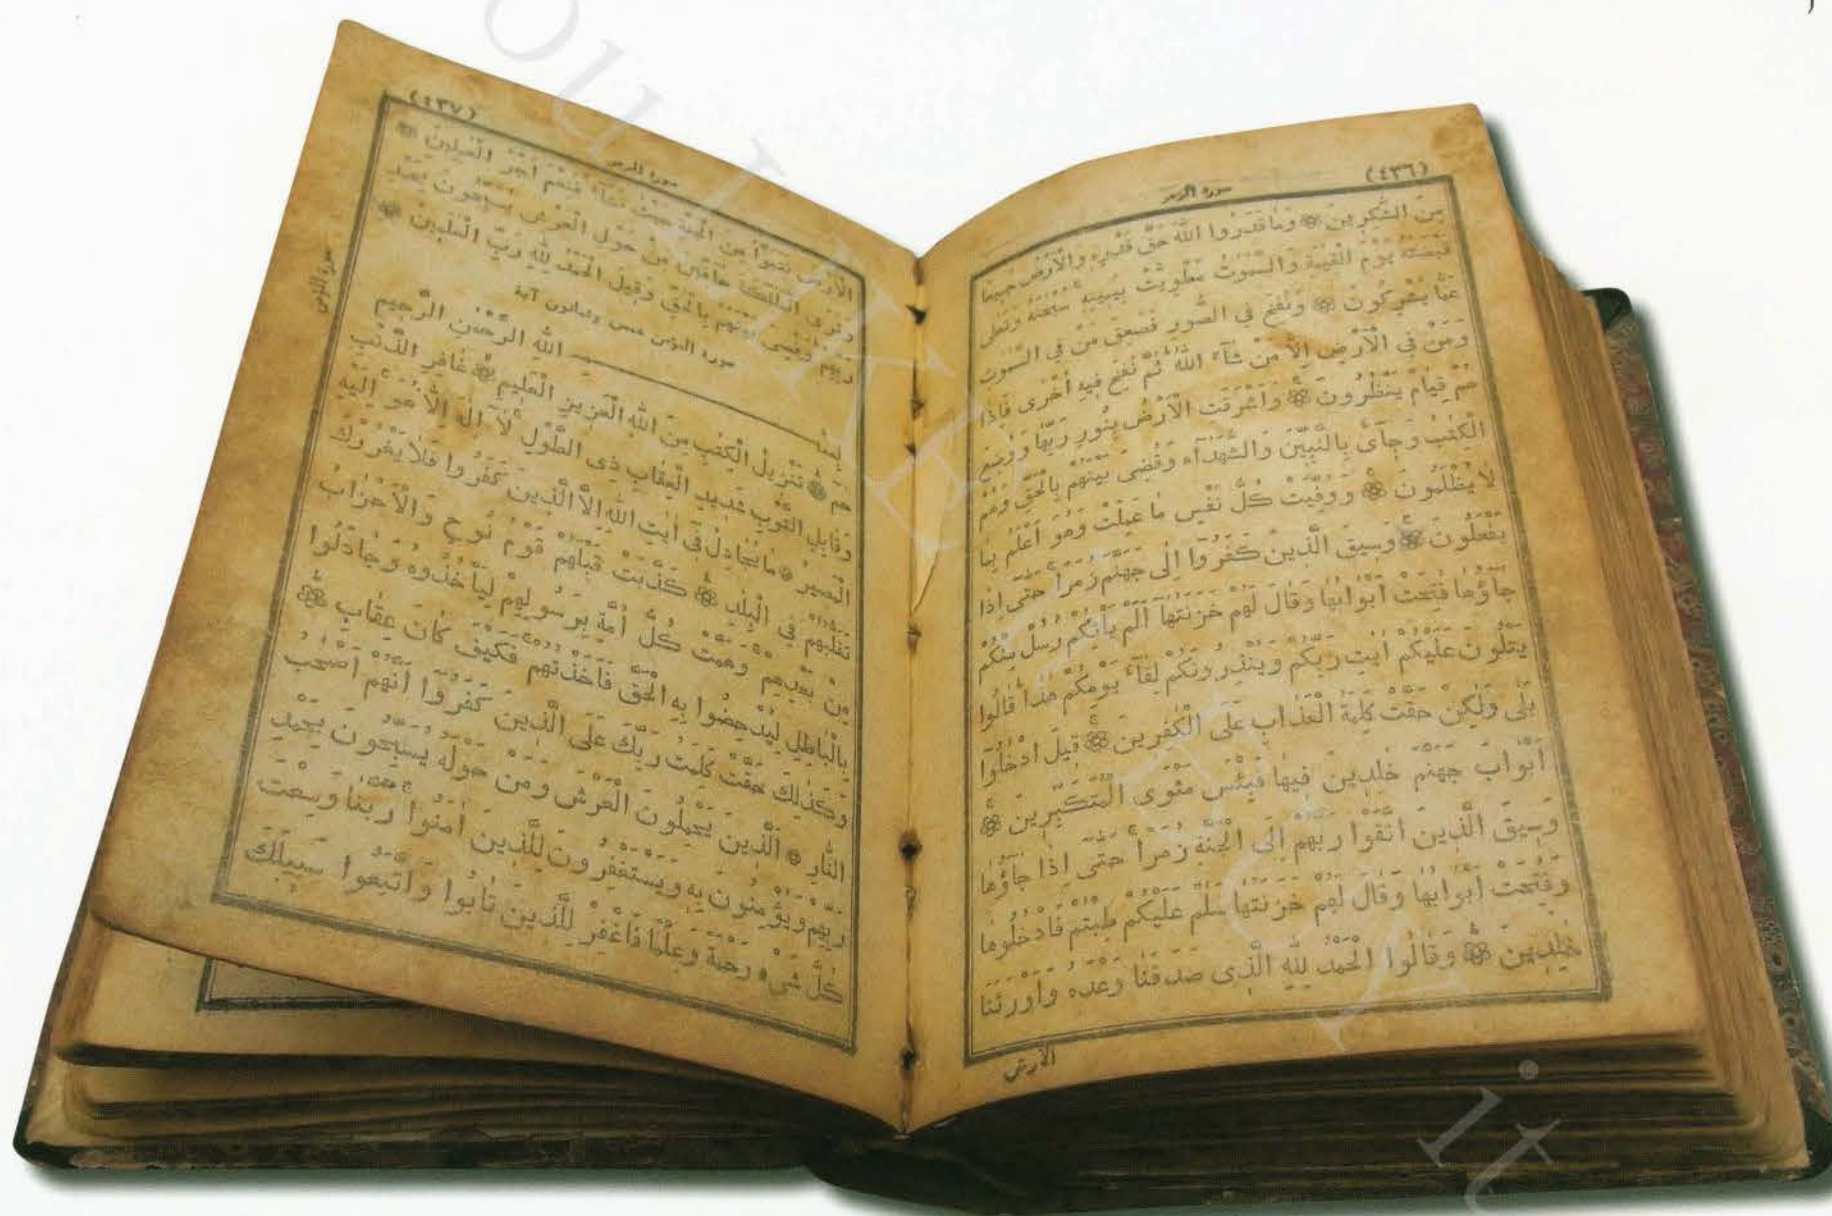 (٤٣٦)
سورة الزمر
مِنَ الشّٰكِرِينَ ۞ وَمَا قَدَرُوا اللّٰهَ حَقَّ قَدْرِهِ وَالْاَرْضُ جَمِيعًا
قَبْضَتُهُ يَوْمَ الْقِيٰمَةِ وَالسَّمٰوٰتُ مَطْوِيّٰتٌ بِيَمِينِهِ سُبْحٰنَهُ وَتَعٰلٰى
عَمَّا يُشْرِكُونَ ۞ وَنُفِخَ فِي الصُّورِ فَصَعِقَ مَنْ فِي السَّمٰوٰتِ
وَمَنْ فِي الْاَرْضِ اِلَّا مَنْ شَآءَ اللّٰهُ ثُمَّ نُفِخَ فِيهِ اُخْرٰى فَاِذَا
هُمْ قِيَامٌ يَنْظُرُونَ ۞ وَاَشْرَقَتِ الْاَرْضُ بِنُورِ رَبِّهَا وَوُضِعَ
الْكِتٰبُ وَجِآىءَ بِالنَّبِيّٖنَ وَالشُّهَدَآءِ وَقُضِيَ بَيْنَهُمْ بِالْحَقِّ وَهُمْ
لَا يُظْلَمُونَ ۞ وَوُفِّيَتْ كُلُّ نَفْسٍ مَا عَمِلَتْ وَهُوَ اَعْلَمُ بِمَا
يَفْعَلُونَ ۞ وَسِيقَ الَّذِينَ كَفَرُوٓا اِلٰى جَهَنَّمَ زُمَرًا حَتّٰٓى اِذَا
جَآؤُهَا فُتِحَتْ اَبْوَابُهَا وَقَالَ لَهُمْ خَزَنَتُهَآ اَلَمْ يَأْتِكُمْ رُسُلٌ مِنْكُمْ
يَتْلُونَ عَلَيْكُمْ اٰيٰتِ رَبِّكُمْ وَيُنْذِرُونَكُمْ لِقَآءَ يَوْمِكُمْ هٰذَا قَالُوا
بَلٰى وَلٰكِنْ حَقَّتْ كَلِمَةُ الْعَذَابِ عَلَى الْكٰفِرِينَ ۞ قِيلَ ادْخُلُوٓا
اَبْوَابَ جَهَنَّمَ خٰلِدِينَ فِيهَا فَبِئْسَ مَثْوَى الْمُتَكَبِّرِينَ ۞
وَسِيقَ الَّذِينَ اتَّقَوْا رَبَّهُمْ اِلَى الْجَنَّةِ زُمَرًا حَتّٰٓى اِذَا جَآؤُهَا
وَفُتِحَتْ اَبْوَابُهَا وَقَالَ لَهُمْ خَزَنَتُهَا سَلٰمٌ عَلَيْكُمْ طِبْتُمْ فَادْخُلُوهَا
خٰلِدِينَ ۞ وَقَالُوا الْحَمْدُ لِلّٰهِ الَّذِي صَدَقَنَا وَعْدَهُ وَاَوْرَثَنَا
الارض
(٤٣٧)
سورة الزمر
الْاَرْضَ نَتَبَوَّاُ مِنَ الْجَنَّةِ حَيْثُ نَشَآءُ فَنِعْمَ اَجْرُ الْعٰمِلِينَ ۞
وَتَرَى الْمَلٰٓئِكَةَ حَآفِّينَ مِنْ حَوْلِ الْعَرْشِ يُسَبِّحُونَ بِحَمْدِ
رَبِّهِمْ وَقُضِيَ بَيْنَهُمْ بِالْحَقِّ وَقِيلَ الْحَمْدُ لِلّٰهِ رَبِّ الْعٰلَمِينَ ۞
سورة المؤمن خمس وثمانون آية
بِسْمِ اللّٰهِ الرَّحْمٰنِ الرَّحِيمِ
حٰمٓ ۞ تَنْزِيلُ الْكِتٰبِ مِنَ اللّٰهِ الْعَزِيزِ الْعَلِيمِ ۞ غَافِرِ الذَّنْبِ
وَقَابِلِ التَّوْبِ شَدِيدِ الْعِقَابِ ذِي الطَّوْلِ لَآ اِلٰهَ اِلَّا هُوَ اِلَيْهِ
الْمَصِيرُ ۞ مَا يُجَادِلُ فِيٓ اٰيٰتِ اللّٰهِ اِلَّا الَّذِينَ كَفَرُوا فَلَا يَغْرُرْكَ
تَقَلُّبُهُمْ فِي الْبِلٰدِ ۞ كَذَّبَتْ قَبْلَهُمْ قَوْمُ نُوحٍ وَالْاَحْزَابُ
مِنْ بَعْدِهِمْ وَهَمَّتْ كُلُّ اُمَّةٍ بِرَسُولِهِمْ لِيَأْخُذُوهُ وَجَادَلُوا
بِالْبَاطِلِ لِيُدْحِضُوا بِهِ الْحَقَّ فَاَخَذْتُهُمْ فَكَيْفَ كَانَ عِقَابِ ۞
وَكَذٰلِكَ حَقَّتْ كَلِمَتُ رَبِّكَ عَلَى الَّذِينَ كَفَرُوٓا اَنَّهُمْ اَصْحٰبُ
النَّارِ ۞ اَلَّذِينَ يَحْمِلُونَ الْعَرْشَ وَمَنْ حَوْلَهُ يُسَبِّحُونَ بِحَمْدِ
رَبِّهِمْ وَيُؤْمِنُونَ بِهِ وَيَسْتَغْفِرُونَ لِلَّذِينَ اٰمَنُوا رَبَّنَا وَسِعْتَ
كُلَّ شَيْءٍ رَحْمَةً وَعِلْمًا فَاغْفِرْ لِلَّذِينَ تَابُوا وَاتَّبَعُوا سَبِيلَكَ
سورة المؤمن
ou LIKE
it